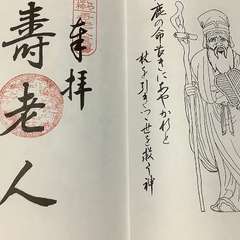 鹿の命長きにあやかれと
杖を引きつゝ世を救う神
奉拝
壽老人